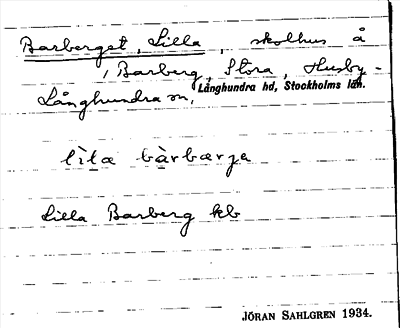 Barberget, Lilla, skolhus å
/ Barberg, Stora, Husby-
Långhundra sn, Långhundra hd, Stockholms län.
lìlæ bàrbærjæ
Lilla Barberg kb
JÖRAN SAHLGREN 1934.